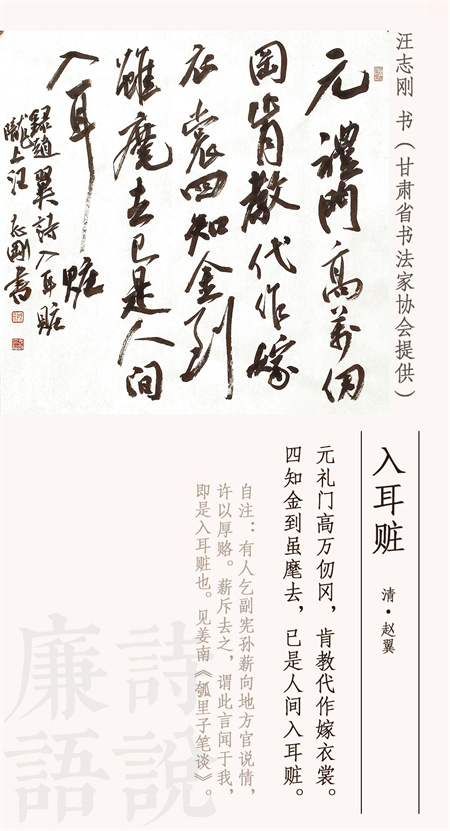 汪志刚 书（甘肃省书法家协会提供）
元禮門高萬仞
岡肯教代作嫁
衣裳四知金到
雖麾去已是人間
入耳賍
錄趙翼詩入耳賍
隴上汪志剛書
入耳赃
清·赵翼
元礼门高万仞冈，肯教代作嫁衣裳。
四知金到虽麾去，已是人间入耳赃。
自注：有人乞副宪孙薪向地方官说情，
许以厚赂。薪斥去之，谓此言闻于我，
即是入耳赃也。见姜南《瓠里子笔谈》。
詩說
廉語